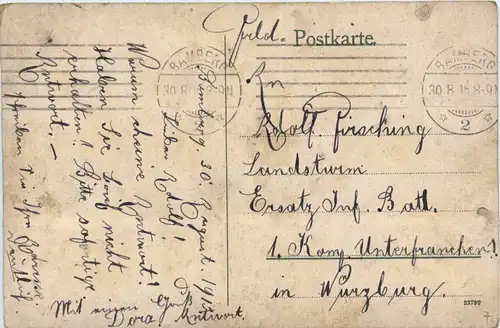 Feld- Postkarte.
BAMBERG
30.8.15.8-9N
2
BAMBERG
30.8.15.8-9N
2
An
Adolf Firsching
Landsturm
Ersatz Inf. Batl.
1. Komp. Unterfranchen!
in Würzburg.
Bamberg 30. August. 1915
Lieber Adolf!
Warum keine Antwort!
Haben Sie Brief nicht
erhalten! Bitte sofortige
Antwort. –
Mit einem Gruß
Dora. Antwort.
22792